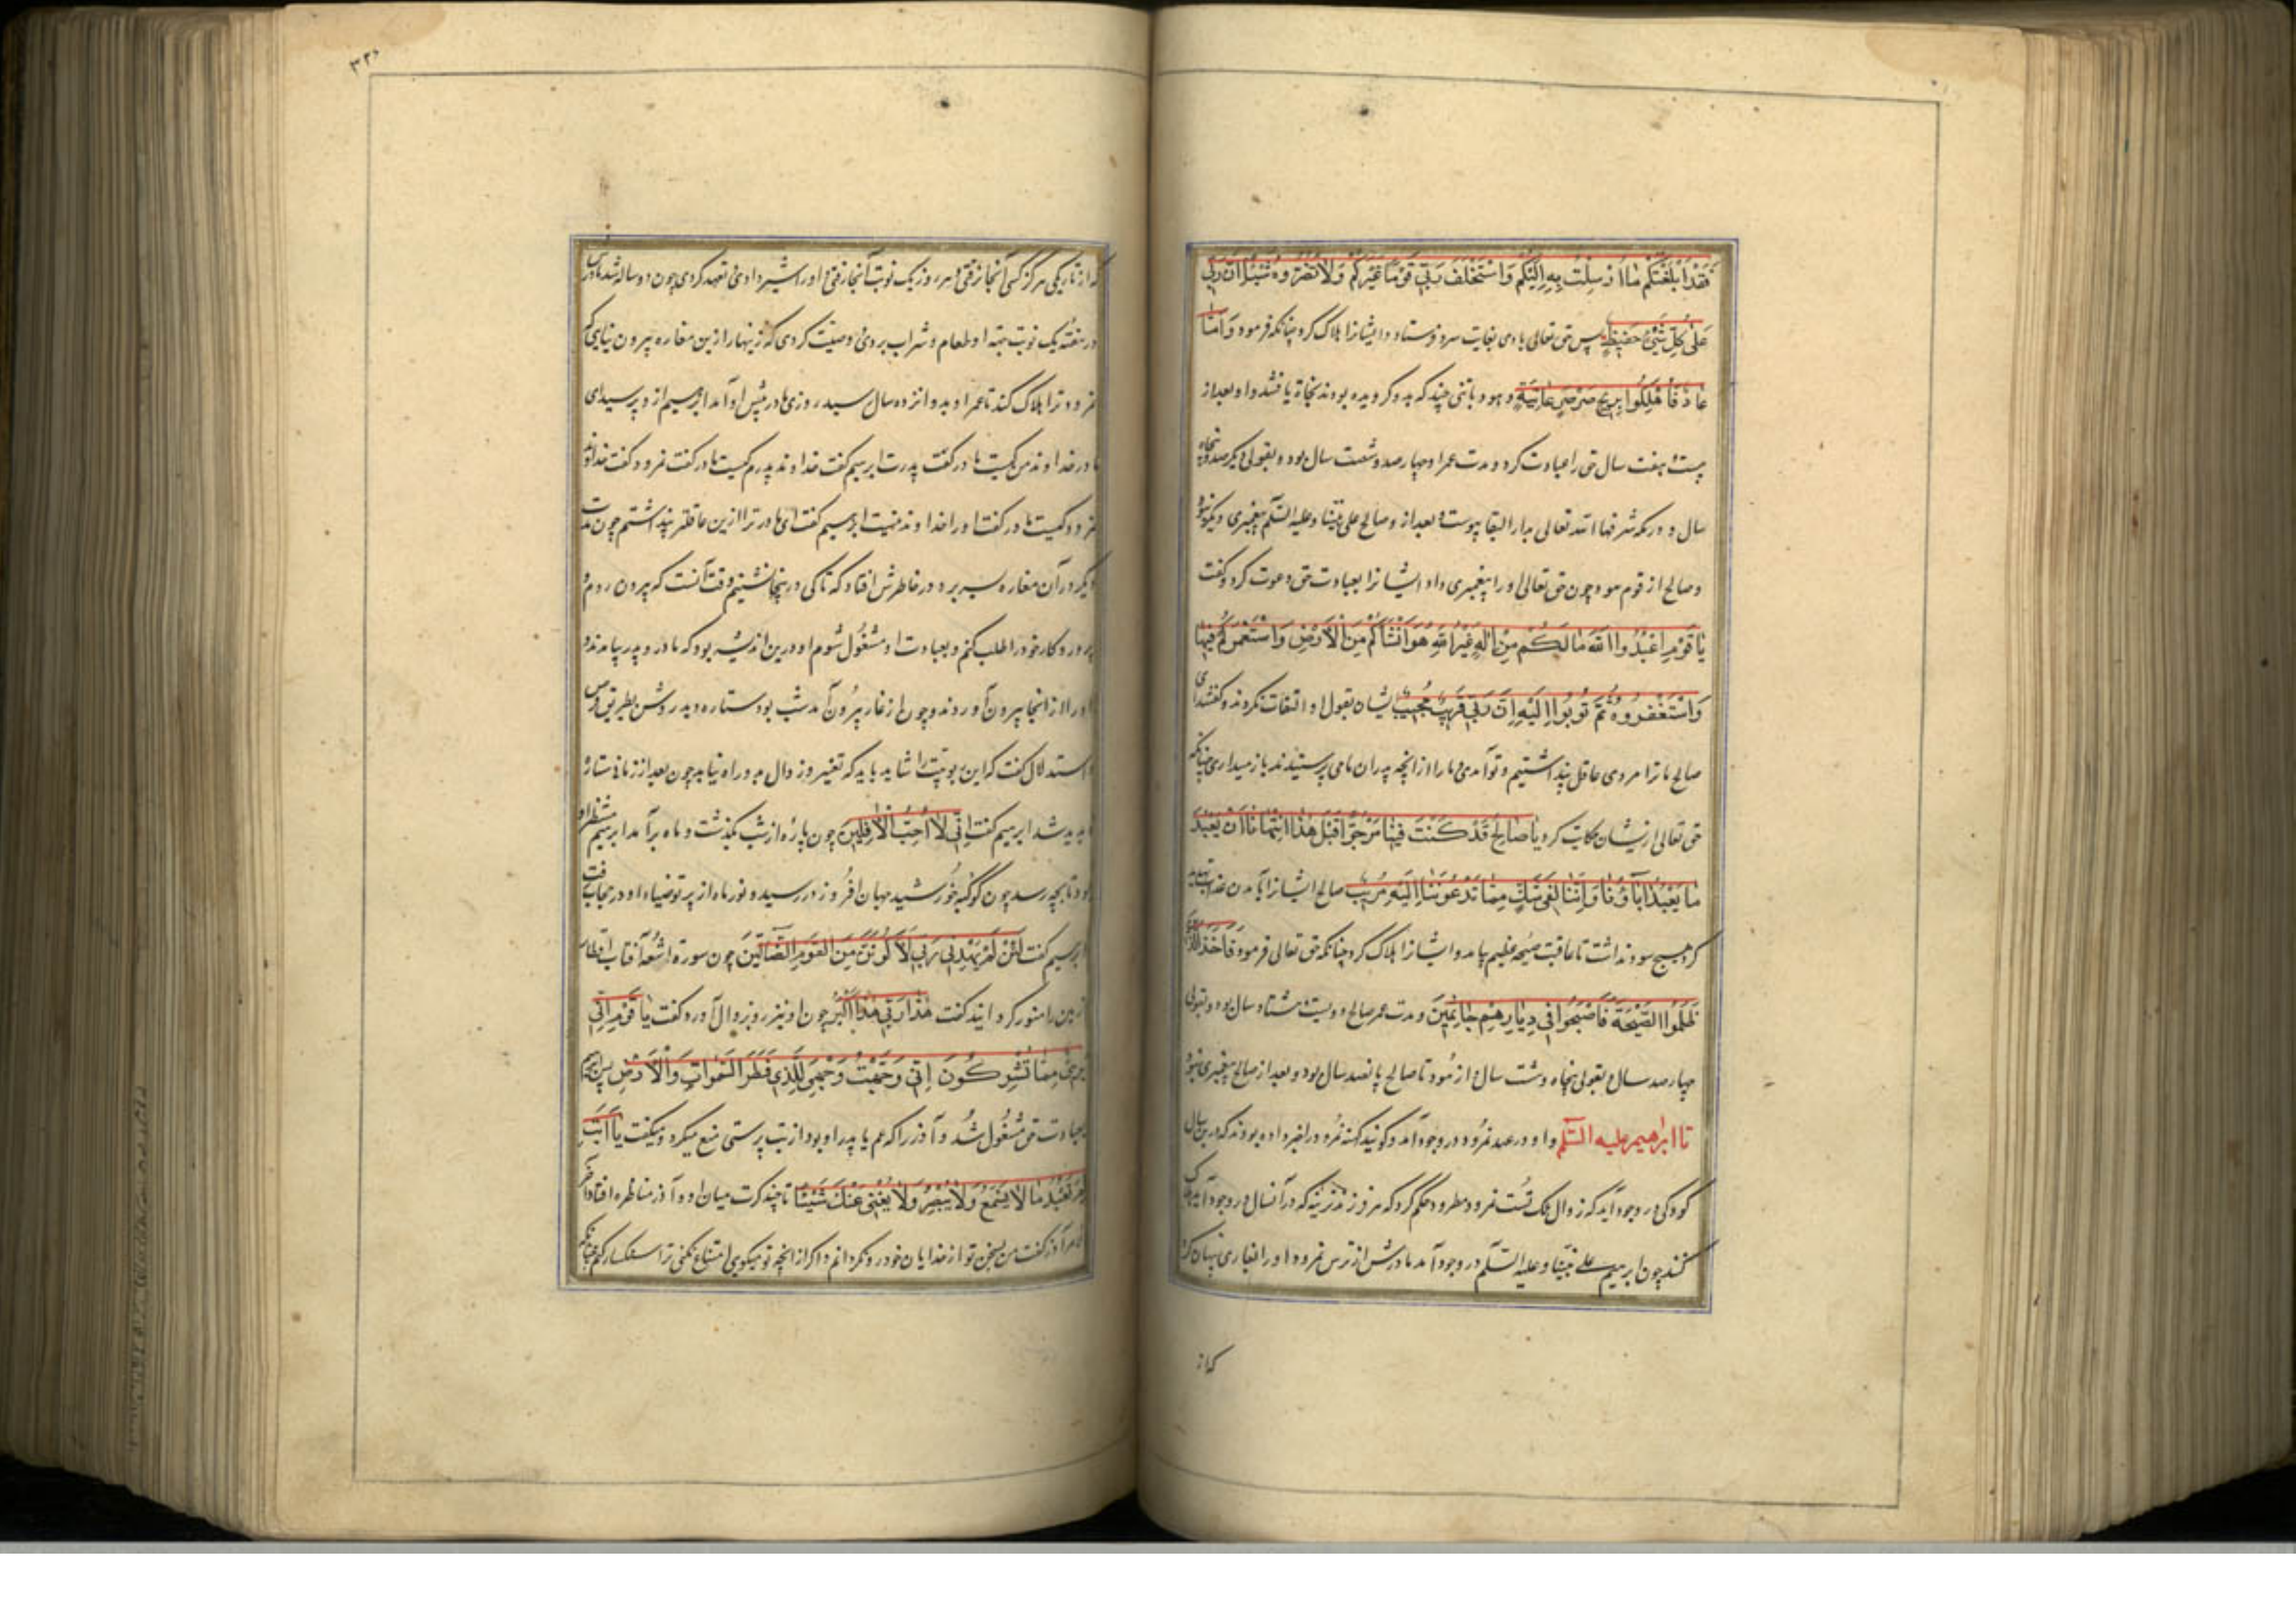 فَقَدْ اَبْلَغْتُكُم مٰا اُرْسِلْتُ بِهِ اِلَيْكُمْ وَاسْتَخْلَفَ رَبّي قَوْمًا غَيْرَكُمْ وَلاٰ تَضُرّوهُ شَيْـًٔا اِنَّ رَبّي
عَلىٰ كُلِّ شَيْءٍ حَفيظٌ پس حق تعالی بادی بغایت سرد فرستاد و ایشانرا هلاک کرد چنانکه فرمود وَاَمّٰا
عٰادٌ فَاُهْلِكُوا بِريحٍ صَرْصَرٍ عٰاتِيَةٍ و هود با تنی چند که بدو گرویده بودند نجاة یافتند و او بعد از
بیست و هفت سال حق را عبادت کرد و مدت عمر او چهار صد و شصت سال بود و بقولی دیگر صد و پنجاه
سال و در مکه شرفها الله تعالی بدار البقا پیوست و بعد از و صالح علی نبینا و علیه السّلم پیغمبری دیگر نبود
و صالح از قوم هود چون حق تعالی او را پیغمبری داد ایشانرا بعبادت حق دعوت کرد و گفت
يٰا قَوْمِ اعْبُدُوا اللهَ مٰا لَكُمْ مِنْ اِلٰهٍ غَيْرُ اللهِ هُوَ اَنْشَأَكُمْ مِنَ الْاَرْضِ وَاسْتَعْمَرَكُمْ فيهٰا
وَاسْتَغْفِرُوهُ ثُمَّ تُوبُوا اِلَيْهِ اِنَّ رَبّي قَريبٌ مُجيبٌ ایشان بقول او التفات نکردند و گفتند ای
صالح ما ترا مردی عاقل پنداشتیم و تو آمدی و ما را از آنچه پدران ما می پرستیدند باز میداری چنانکه
حق تعالی ازیشان حکایت کرد يٰا صٰالِحُ قَدْ كُنْتَ فينٰا مَرْجُوًّا قَبْلَ هٰذٰا اَتَنْهٰانٰا اَنْ نَعْبُدَ
مٰا يَعْبُدُ اٰبٰاؤُنٰا وَاِنَّنٰا لَفي شَكٍّ مِمّٰا تَدْعُونَنٰا اِلَيْهِ مُريبٌ صالح ایشانرا بآمدن عذاب تهدید
کرد هیچ سود نداشت تا عاقبت صیحه عظیم بیامد و ایشانرا هلاک کرد چنانکه حق تعالی فرمود فَاَخَذَ الَّذينَ
ظَلَمُوا الصَّيْحَةُ فَاَصْبَحُوا في دِيٰارِهِمْ جٰاثِمينَ و مدت عمر صالح دویست و هشتاد سال بود و بقولی
چهار صد سال و بقولی پنجاه و شست سال از هود تا صالح پانصد سال بود و بعد از صالح پیغمبری نبود
تا ابراهیم علیه السّلم و او در عهد نمرود در وجود آمد و گویند کهنه نمرود را خبر داده بودند که درین سال
کودکی در وجود آید که زوال ملک تست نمرود مطرود حکم کرد که هر فرزند نرینه که در آنسال در وجود آید هلاک
کنند چون ابرهیم علی نبیّنا و علیه السّلم در وجود آمد مادرش از ترس نمرود او را در غاری پنهان کرد
که از
٣٢٠
که از تاریکی هرگز کسی آنجا نرفتی و هر روز یک نوبت آنجا رفتی و او را شیر دادی و تعهد کردی چون دو ساله شد مادرش
در هفته یک نوبت جهة او طعام و شراب بردی و وصیت کردی که زینهار ازین مغاره بیرون نیایی که
نمرود ترا هلاک کند تا عمر او بدوانزده سال رسید روزی مادر پیش او آمد ابرهیم از و پرسید ای
مادر خداوند من کیست مادر گفت پدرت ابرهیم گفت خداوند پدرم کیست مادر گفت نمرود گفت خداوند
نمرود کیست مادر گفت او را خداوند نیست ابرهیم گفت ای مادر ترا ازین عاقلتر پنداشتم چون مدت
دیگر در آن مغاره بسر برد در خاطرش افتاد که تا کی درینجا نشینم وقت آنست که بیرون روم و
پروردگار خود را طلب کنم و بعبادت او مشغول شوم او درین اندیشه بود که مادر و پدر بیامدند و
او را از آنجا بیرون آوردند و چون از غار بیرون آمد شب بود ستاره دید روشن بطریق فرض
و استدلال گفت که این ربوبیّت را شاید باید که تغییر و زوال بدو راه نیابد چون بعد از زمانی ستاره
ناپدید شد ابرهیم گفت اِنّي لٰا اُحِبُّ الْاٰفِلينَ چون پارهٔ از شب بگذشت و ماه برآمد ابرهیم منتظر او
بود تا بچه رسد چون کوکبهٔ خورشید جهان افروز در رسید و نور ماه از پرتو ضیاء او در حجاب رفت
ابرهیم گفت لَئِنْ لَمْ يَهْدِني رَبّي لَاَكُونَنَّ مِنَ الْقَوْمِ الضّٰالّينَ چون سورة اشعهٔ آفتاب اقطار
زمین را منور گردانید گفت هٰذٰا رَبّي هٰذٰا اَكْبَرُ چون او نیز رو بزوال آورد گفت يٰا قَوْمِ اِنّي
بَريءٌ مِمّٰا تُشْرِكُونَ اِنّي وَجَّهْتُ وَجْهِيَ لِلَّذي فَطَرَ السَّمٰوٰاتِ وَالْاَرْضَ پس ابرهیم
بعبادت حق مشغول شد و آذر را که عم یا پدر او بود از بت پرستی منع میکرد و میگفت يٰا اَبَتِ
لِمَ تَعْبُدُ مٰا لاٰ يَسْمَعُ وَلاٰ يُبْصِرُ وَلاٰ يُغْني عَنْكَ شَيْئًا تا چند کرت میان او و آذر مناظره افتاد آخر
الامر آذر گفت من بسخن تو از خدایان خود رو نگردانم و اگر از آنچه تو میگویی امتناع نکنی ترا سنگسار کنم چنانکه